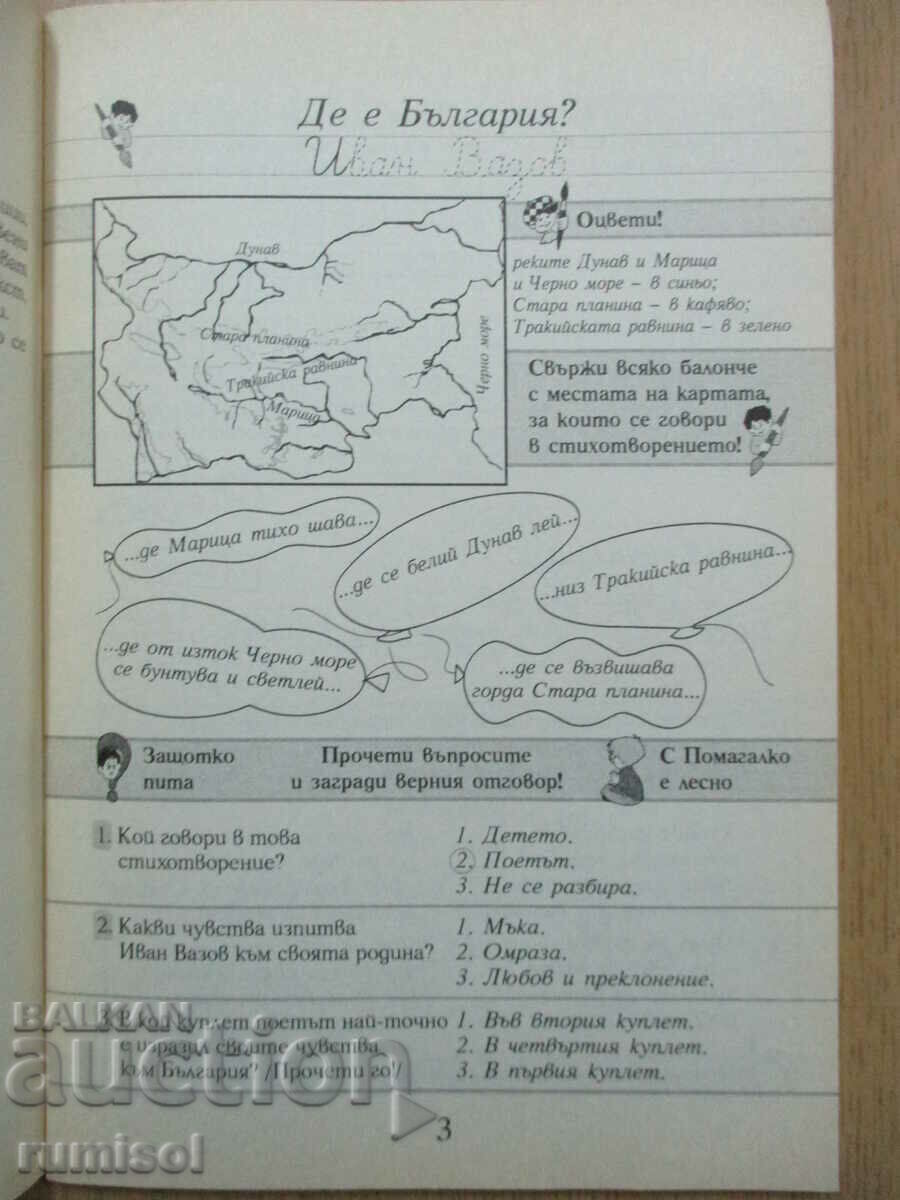 Де е България?
Иван Вазов
Оцвети!
реките Дунав и Марица
и Черно море – в синьо;
Стара планина – в кафяво;
Тракийската равнина – в зелено
Свържи всяко балонче
с местата на картата,
за които се говори
в стихотворението!
Дунав
Стара планина
Тракийска равнина
Марица
Черно море
...де Марица тихо шава...
...де се белий Дунав лей...
...низ Тракийска равнина...
...де от изток Черно море
се бунтува и светлей...
...де се възвишава
горда Стара планина...
Защотко
пита
Прочети въпросите
и загради верния отговор!
С Помагалко
е лесно
1. Кой говори в това
стихотворение?
1. Детето.
2. Поетът.
3. Не се разбира.
2. Какви чувства изпитва
Иван Вазов към своята родина?
1. Мъка.
2. Омраза.
3. Любов и преклонение.
3. В кой куплет поетът най-точно
е изразил своите чувства
към България? /Прочети го!/
1. Във втория куплет.
2. В четвъртия куплет.
3. В първия куплет.
3
BALKAN
auction
rumisol